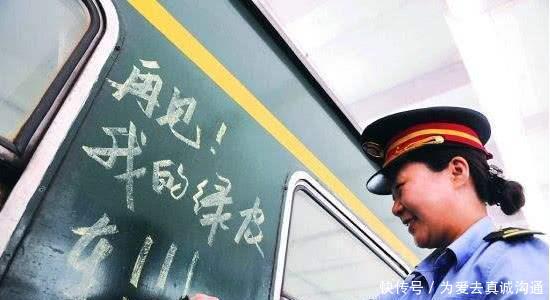 再见！
我的绿皮
车!!!
快传号／为爱去真诚沟通